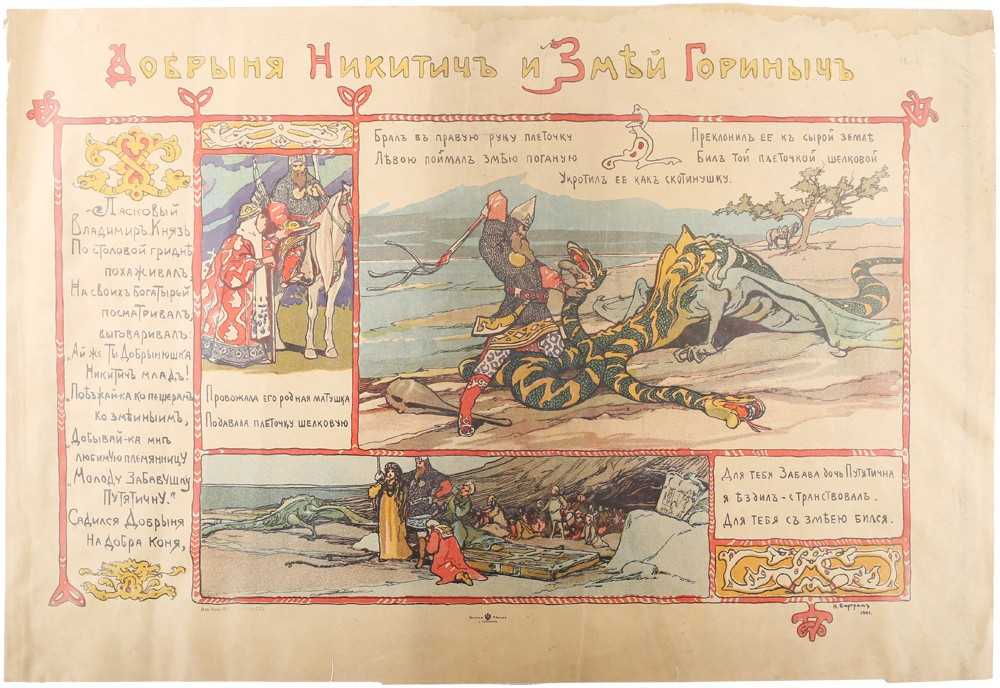 Добрыня Никитичъ и Змѣй Гориничъ
Ласковый
Владимиръ Князь
По столовой гриднѣ
похаживалъ,
На своихъ богатырей
посматривалъ,
выговаривалъ:
„Ай же ты Добрынюшка
Никитичъ младъ!
„Поѣзжай-ка ко пещерамъ
ко змѣиныимъ,
„Добывай-ка мнѣ
любимую племянницу
„Молоду Забавушку
Путятичну."
Садился Добрыня
на добра коня,
Провожала его родная матушка
Подавала плеточку шелковую
Бралъ въ правую руку плеточку
Лѣвою поймалъ змѣю поганую
Преклонилъ ее къ сырой землѣ
Билъ той плеточкой шелковой
Укротилъ ее какъ скотинушку.
Для тебя Забава дочь Путятична
я ѣздилъ-странствовалъ.
Для тебя съ змѣею бился.
Н. Бартрамъ